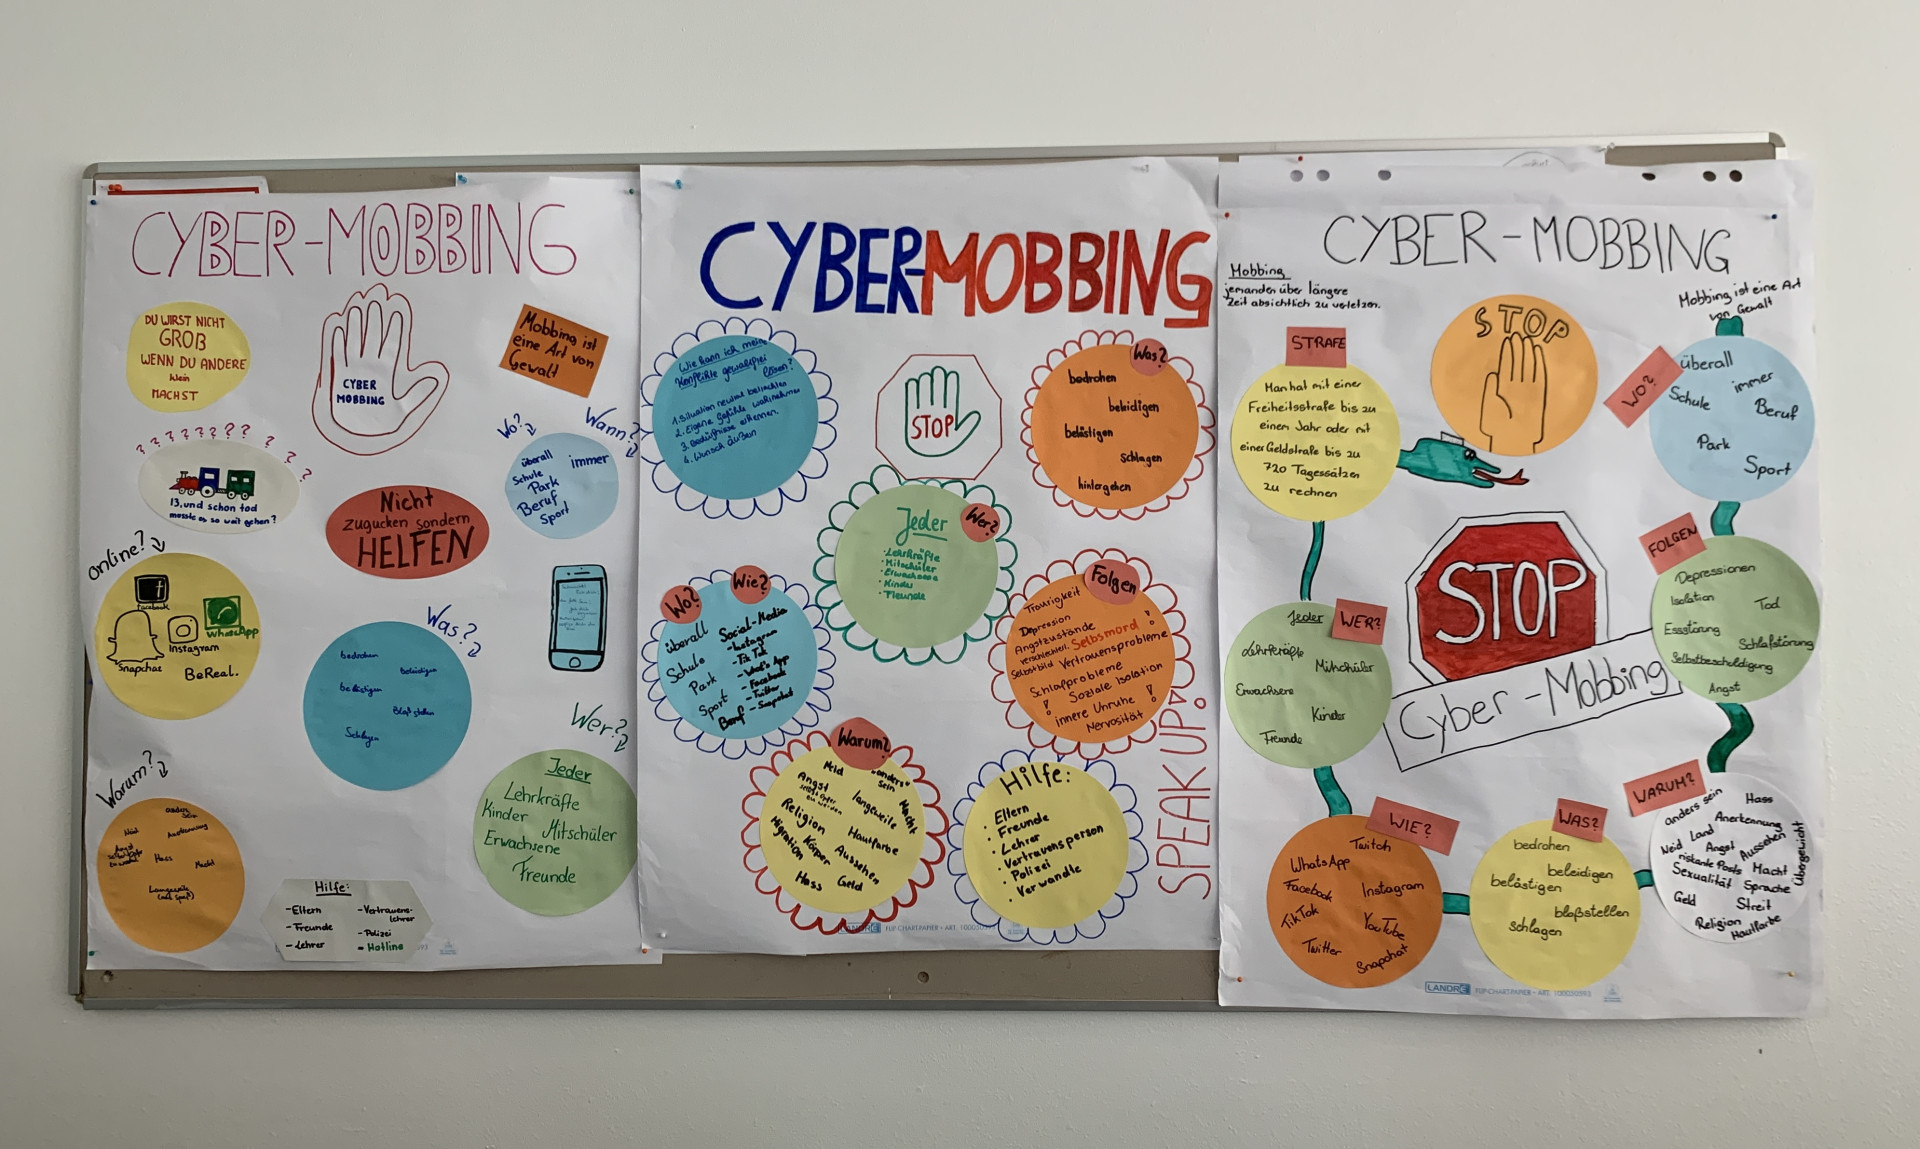 CYBER-MOBBING
DU WIRST NICHT
GROß
WENN DU ANDERE
klein
MACHST
CYBER
MOBBING
Mobbing ist
eine Art von
Gewalt
? ? ? ? ? ? ? ? ? ?
13, und schon tod
musste es so weit gehen?
Nicht
zugucken sondern
HELFEN
Wo?
Wann?
überall
Schule
Park
Beruf
Sport
immer
online?
facebook
WhatsApp
Instagram
Snapchat
BeReal.
Was?
bedrohen
beleidigen
belästigen
Bloß stellen
Schlagen
Wer?
Jeder
Lehrkräfte
Kinder
Mitschüler
Erwachsene
Freunde
Warum?
anders
sein
Neid
Anerkennung
Angst
Hass
Macht
Langeweile
Hilfe:
-Eltern
-Freunde
-Lehrer
-Vertrauens-
lehrer
-Polizei
-Hotline
CYBER-MOBBING
Wie kann ich meine
Konflikte gewaltfrei
lösen?
1. Situation neutral betrachten
2. Eigene Gefühle wahrnehmen
3. Bedürfnisse erkennen.
4. Wunsch äußern
STOP
Was?
bedrohen
beleidigen
belästigen
Schlagen
hintergehen
Wer?
Jeder
·Lehrkräfte
·Mitschüler
·Erwachsene
·Kinder
·Freunde
Wo?
überall
Schule
Park
Sport
Beruf
Wie?
Social-Media
-Instagram
-Tik Tok
-What's App
-Facebook
-Twitter
-Snapchat
Folgen
Traurigkeit
Depression
Angstzustände
Selbstmord
verschlechtert.
Selbstbild
Vertrauensprobleme
Schlafprobleme
Soziale Isolation
innere Unruhe
Nervosität
Warum?
Neid
"anders"
sein
Angst
langeweile
Macht
Religion
Hautfarbe
Migration
Körper
Aussehen
Hass
Geld
Hilfe:
· Eltern
· Freunde
· Lehrer
· Vertrauensperson
· Polizei
· Verwandte
SPEAK UP!
LANDRÉ FLIP-CHART-PAPIER - ART. 100050593
CYBER-MOBBING
Mobbing
jemanden über längere
Zeit absichtlich zu verletzen.
Mobbing ist eine Art
von Gewalt
STRAFE
Man hat mit einer
Freiheitsstrafe bis zu
einem Jahr oder mit
einer Geldstrafe bis zu
720 Tagessätzen
zu rechnen
STOP
WO?
überall
immer
Schule
Beruf
Park
Sport
STOP
Cyber-Mobbing
FOLGEN
Depressionen
Isolation
Tod
Essstörung
Schlafstörung
Selbstbeschuldigung
Angst
WER?
Jeder
Lehrkräfte
Mitschüler
Erwachsene
Kinder
Freunde
WIE?
Twitch
WhatsApp
Facebook
Instagram
TikTok
YouTube
Twitter
Snapchat
WAS?
bedrohen
beleidigen
belästigen
bloßstellen
schlagen
WARUM?
anders sein
Hass
Anerkennung
Neid
Land
Angst
Aussehen
riskante Posts
Macht
Übergewicht
Sexualität
Sprache
Geld
Streit
Religion
Hautfarbe
LANDRÉ FLIP-CHART-PAPIER - ART. 100050593